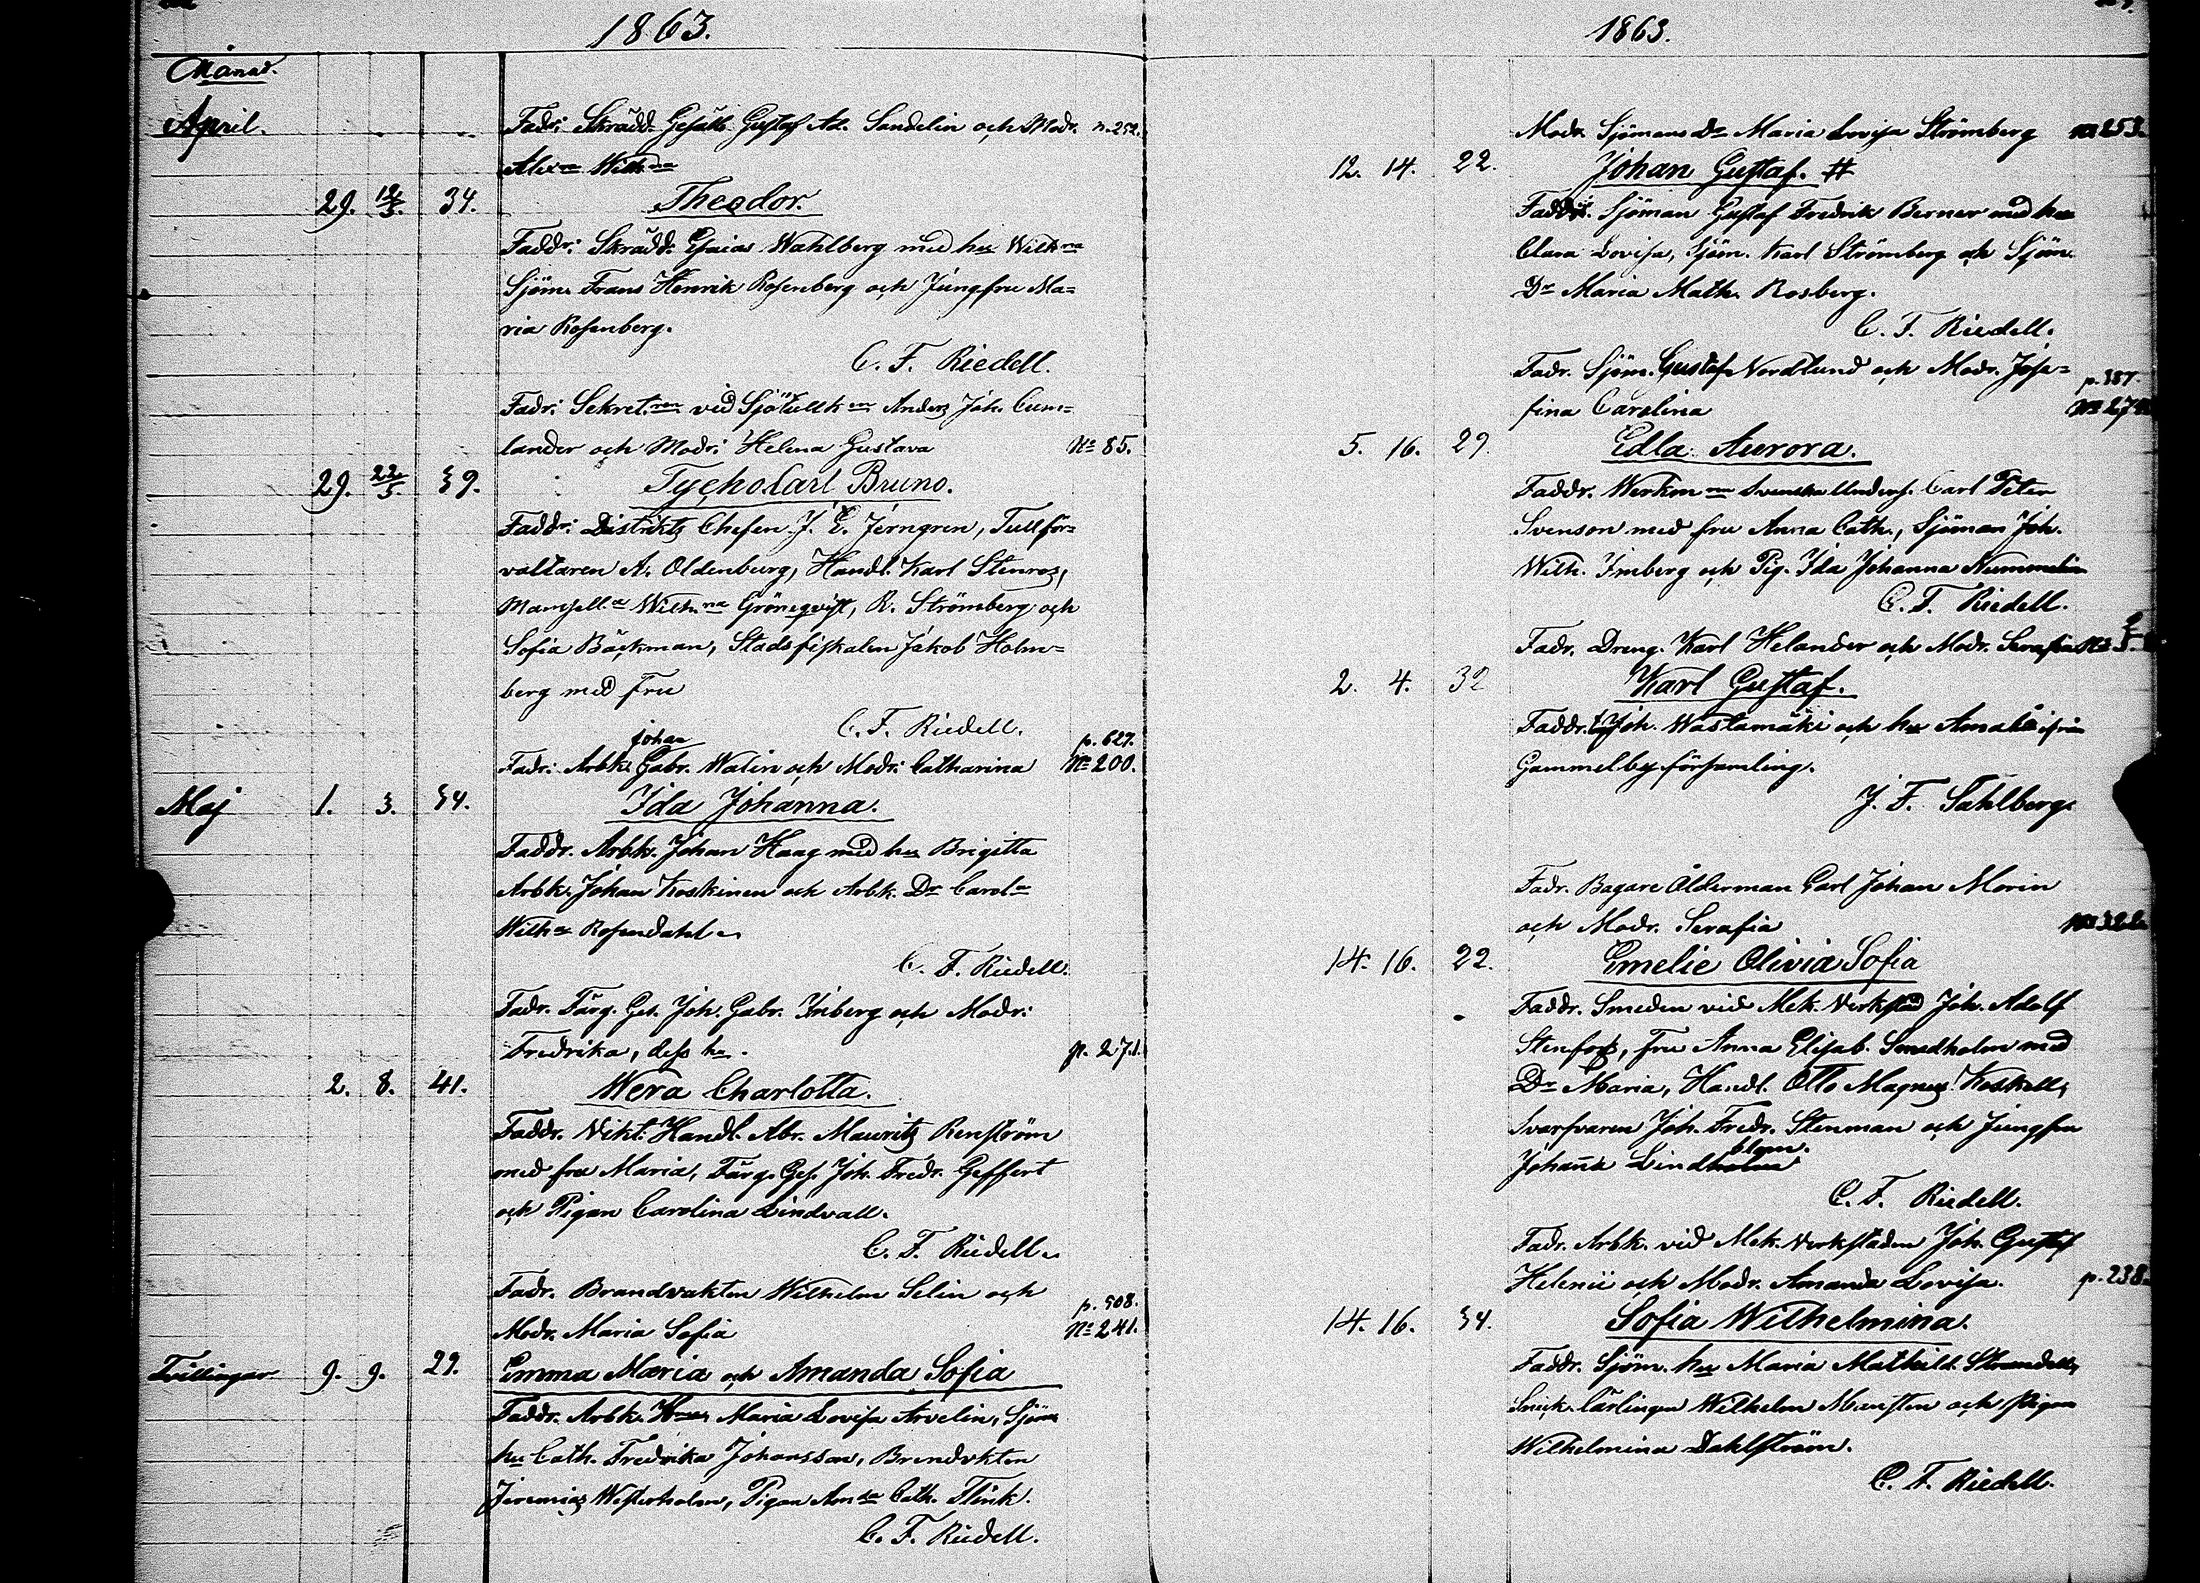 1863.
Månad.
April. Fadr: Skrädd. Gesäll. Gustaf Ad. Sandelin och Modr. n. 252.
Alexna Wilhna
29. 12/5. 34. Theodor.
Faddr: Skrädd: Esaias Wahlberg med hu Wilhna
Sjöm. Frans Henrik Rosenberg och Jungfru Ma=
ria Rosenberg.
C. F. Riedell.
Fadr: Sekret. vid Sjötullk Anders Joh. Cum=
lander och Modr: Helena Gustava No 85.
29. 22/5. 39. Tycho Carl Bruno.
Faddr: Distrikts Chefen J. E. Jerngren, Tullför=
valtaren A. Oldenburg, Handl. Karl Stenros,
Mamsella Wilhna Grönqvist, R. Strömberg och
Sofia Bäckman, Stadsfiskalen Jakob Holm=
berg med Fru
C. F. Riedell.
Johan p. 627.
Fadr: Arbk. Gabr. Walin och Modr: Catharina No 200.
Maj 1. 3. 34. Ida Johanna.
Faddr. Arbk. Johan Haag med hu Brigitta
Arbk. Johan Koskinen och Arbk. Dr Carola
Wilha Rosendahl.
C. F. Riedell.
Fadr. Färg. Ges. Joh. Gabr. Inberg och Modr:
Fredrika, dess hu. p. 271.
2. 8. 41. Wera Charlotta.
Faddr. Vikt. Handl. Abr. Mauritz Renström
med fru Maria, Färg. Ges. Joh. Fredr. Geffert
och Pigan Carolina Lindvall.
C. F. Riedell.
Fadr. Brandvakten Wilhelm Selin och p. 508.
Modr. Maria Sofia No 241.
Tvillingar 9. 9. 29. Emma Maria och Amanda Sofia
Faddr. Arbk. Hu Maria Lovisa Arvelin, Sjöm
hu Cath. Fredrika Johansson, Brandvkten
Jeremias Westerholm, Pigan Amda Cath. Flink.
C. F. Riedell.
1863.
Modr. Sjömans Dr Maria Lovisa Strömberg No 253.
12. 14. 22. Johan Gustaf. #
Faddr. Sjöman Gustaf Fredrik Berner med hu
Clara Lovisa, Sjöm. Karl Strömberg och Sjöm.
Dr Maria Math. Rosberg.
C. F. Riedell.
Fadr. Sjöm. Gustaf Nordlund och Modr. Jose= p. 387.
fina Carolina
5. 16. 29. Edla Aurora.
Faddr. Werkm Svenska Unders. Carl Peter
Svenson med fru Anna Cath., Sjöman Joh.
Wilh. Imberg och Pig. Ida Johanna Nummelin
C. F. Riedell.
Fadr. Dreng. Karl Helander och Modr. Serafia
2. 4. 32 Karl Gustaf.
Faddr. Joh. Wastamäki och hu Amalia ifrån
Gammelby församling.
J. F. Sahlberg.
Fadr. Bagare Ålderman Carl Johan Morin
och Modr. Serafia No 322.
14. 16. 22. Emelie Olivia Sofia
Faddr. Smeden vid Mek. Verkstad Joh. Adolf
Stenfors, Fru Anna Elisab. Smedholm med
Dr Maria, Handl. Otto Magnus Koskell,
Svarfvaren Joh. Fredr. Stenman och Jungfru
Johanna Lindholm blom.
C. F. Riedell.
Fadr. Arbk. vid Mek. Verkstaden Joh. Gustaf
Helenii och Modr. Amanda Lovisa. p. 238.
14. 16. 34. Sofia Wilhelmina.
Faddr. Sjöm. hu Maria Mathild. Strandell,
Snick. Lärlingen Wilhelm Mansten och Pigan
Wilhelmina Dahlström.
C. F. Riedell.